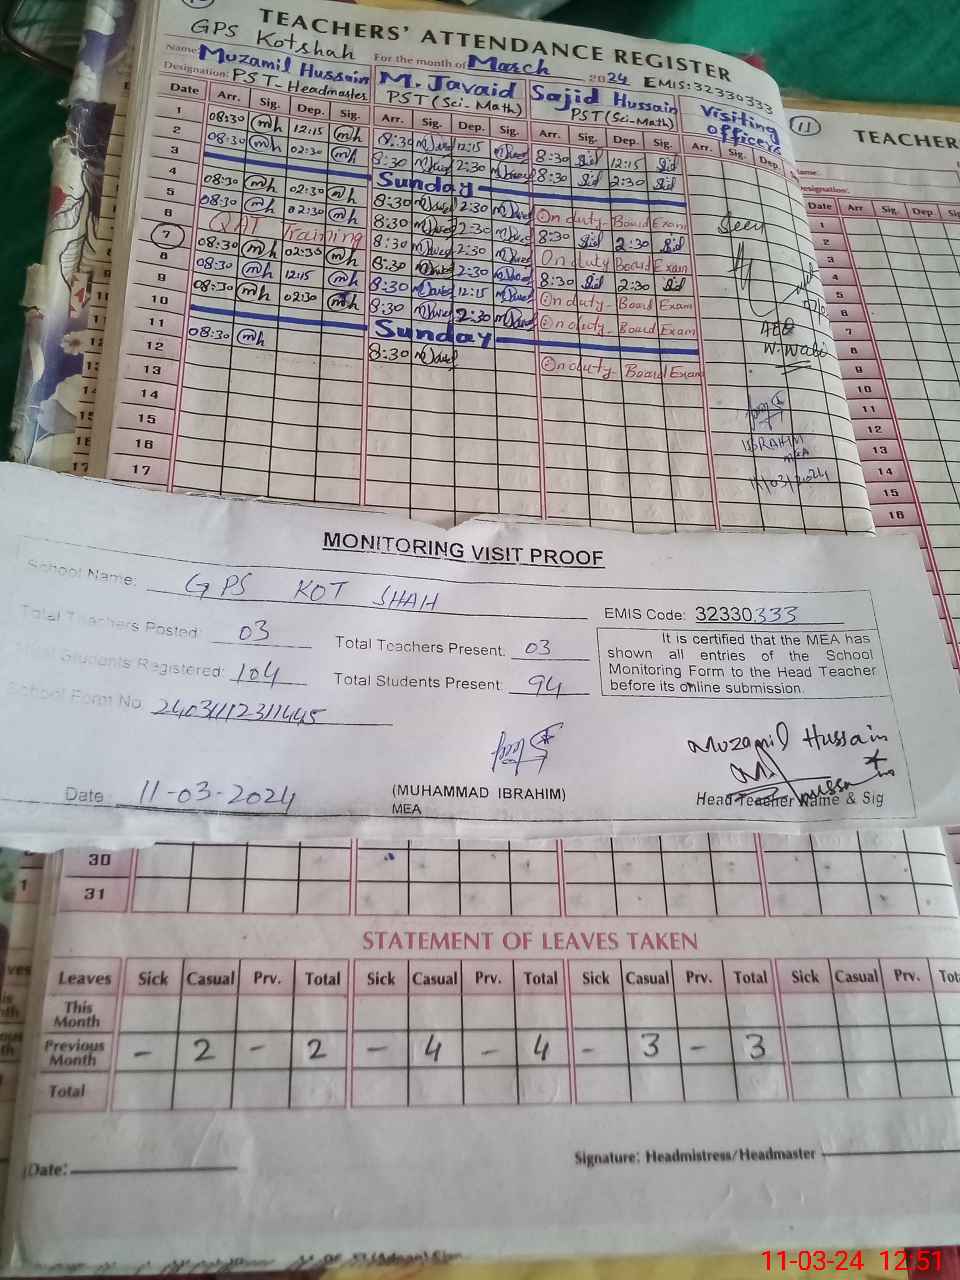 TEACHERS' ATTENDANCE REGISTER
GPS Kotshah
Name: Muzamil Hussain For the month of March 2024 EMIS: 32330333
M. Javaid Sajid Hussain Visiting officers
Designation: PST-Headmaster PST (Sci-Math) PST (Sci-Math)
Date Arr. Sig. Dep. Sig. Arr. Sig. Dep. Sig. Arr. Sig. Dep. Sig. Arr. Sig. Dep.
1 08:30 mh 12:15 mh 8:30 12:15 8:30 12:15
2 08:30 mh 02:30 mh 8:30 2:30 8:30 2:30
3 Sunday
4 08:30 mh 02:30 mh 8:30 2:30 On duty-Board Exam
5 08:30 mh 02:30 mh 8:30 2:30 8:30 2:30
6 QAT Training 8:30 2:30 On duty Board Exam
7 08:30 mh 02:30 mh 8:30 2:30 8:30 2:30
8 08:30 mh 12:15 mh 8:30 12:15 On duty-Board Exam
9 08:30 mh 02:30 mh 8:30 2:30 On duty-Board Exam
10 Sunday
11 08:30 mh 8:30 On duty-Board Exam
12
13
14
15
16
17
Seen
AEO
W. Wabi
IBRAHIM
MEA
11/03/2024
11
TEACHERS
Name:
Designation:
Date Arr. Sig. Dep. Sig
1
2
3
4
5
6
7
8
9
10
11
12
13
14
15
16
MONITORING VISIT PROOF
School Name: GPS KOT SHAH
EMIS Code: 32330333
Total Teachers Posted: 03 Total Teachers Present: 03
Total Students Registered: 104 Total Students Present: 94
School Form No: 24031112311445
It is certified that the MEA has
shown all entries of the School
Monitoring Form to the Head Teacher
before its online submission.
Muzamil Hussain
Date: 11-03-2024
(MUHAMMAD IBRAHIM)
MEA
Head Teacher Name & Sig
30
31
STATEMENT OF LEAVES TAKEN
Leaves Sick Casual Prv. Total Sick Casual Prv. Total Sick Casual Prv. Total Sick Casual Prv. Tot
This Month
Previous Month - 2 - 2 - 4 - 4 - 3 - 3
Total
Date:
Signature: Headmistress/Headmaster
11-03-24 12:51